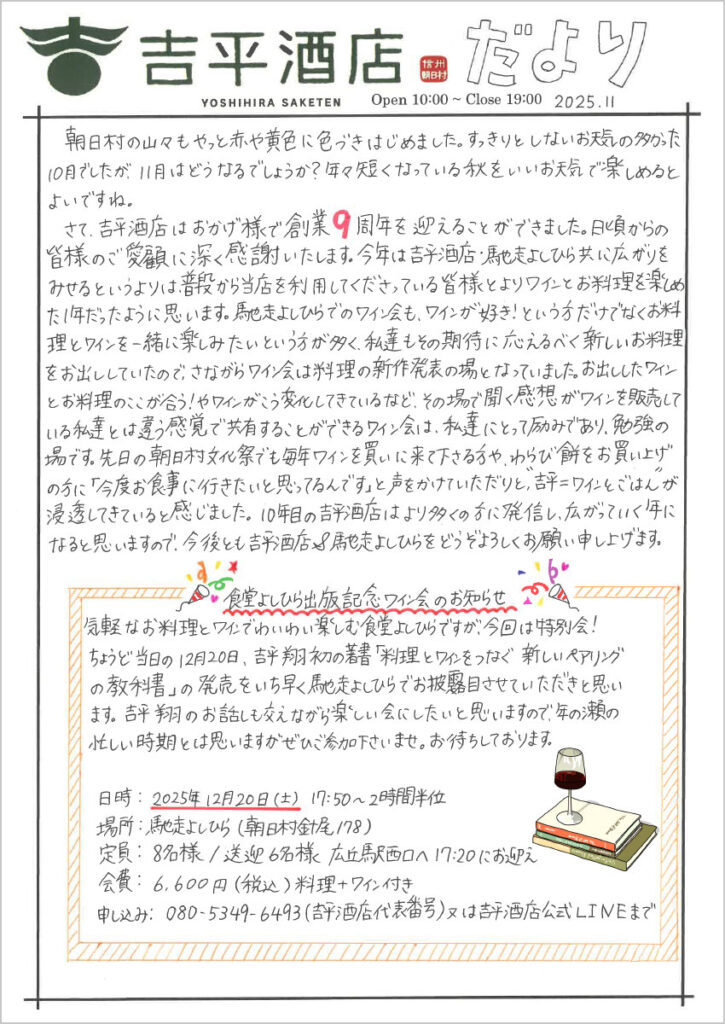 吉平酒店 信州朝日村 だより
YOSHIHIRA SAKETEN Open 10:00 ~ Close 19:00 2025.11
朝日村の山々もやっと赤や黄色に色づきはじめました。すっきりとしないお天気の多かった
10月でしたが、11月はどうなるでしょうか?年々短くなっている秋をいいお天気で楽しめると
よいですね。
さて、吉平酒店はおかげ様で創業9周年を迎えることができました。日頃からの
皆様のご愛顧に深く感謝いたします。今年は吉平酒店・馳走よしひら共に広がりを
みせるというよりは普段から当店を利用してくださっている皆様とよりワインとお料理を楽しめ
た1年だったように思います。馳走よしひらでのワイン会も、ワインが好き!という方だけでなくお料
理とワインを一緒に楽しみたいという方が多く、私達もその期待に応えるべく新しいお料理
をお出ししていたので、さながらワイン会は料理の新作発表の場となっていました。お出ししたワイン
とお料理のここが合う!やワインがこう変化してきているなど、その場で聞く感想がワインを販売して
いる私達とは違う感覚で共有することができるワイン会は、私達にとって励みであり、勉強の
場です。先日の朝日村文化祭でも毎年ワインを買いに来て下さる方や、わらび餅をお買い上げ
の方に「今度お食事に行きたいと思ってるんです」と声をかけていただだりと、"吉平=ワインとごはん"が
浸透してきていると感じました。10年目の吉平酒店はより多くの方に発信し、広がっていく年に
なると思いますので、今後とも吉平酒店&馳走よしひらをどうぞよろしくお願い申し上げます。
食堂よしひら出版記念ワイン会のお知らせ
気軽なお料理とワインでわいわい楽しむ食堂よしひらですが、今回は特別会!
ちょうど当日の12月20日、吉平翔初の著書「料理とワインをつなぐ 新しいペアリング
の教科書」の発売をいち早く馳走よしひらでお披露目させていただきと思い
ます。吉平翔のお話しも交えながら楽しい会にしたいと思いますので、年の瀬の
忙しい時期とは思いますがぜひご参加下さいませ。お待ちしております。
日時: 2025年12月20日(土) 17:50~2時間半位
場所: 馳走よしひら(朝日村針尾178)
定員: 8名様 / 送迎6名様 広丘駅西口へ17:20にお迎え
会費: 6,600円(税込)料理+ワイン付き
申し込み: 080-5349-6493(吉平酒店代表番号)又は吉平酒店公式LINEまで